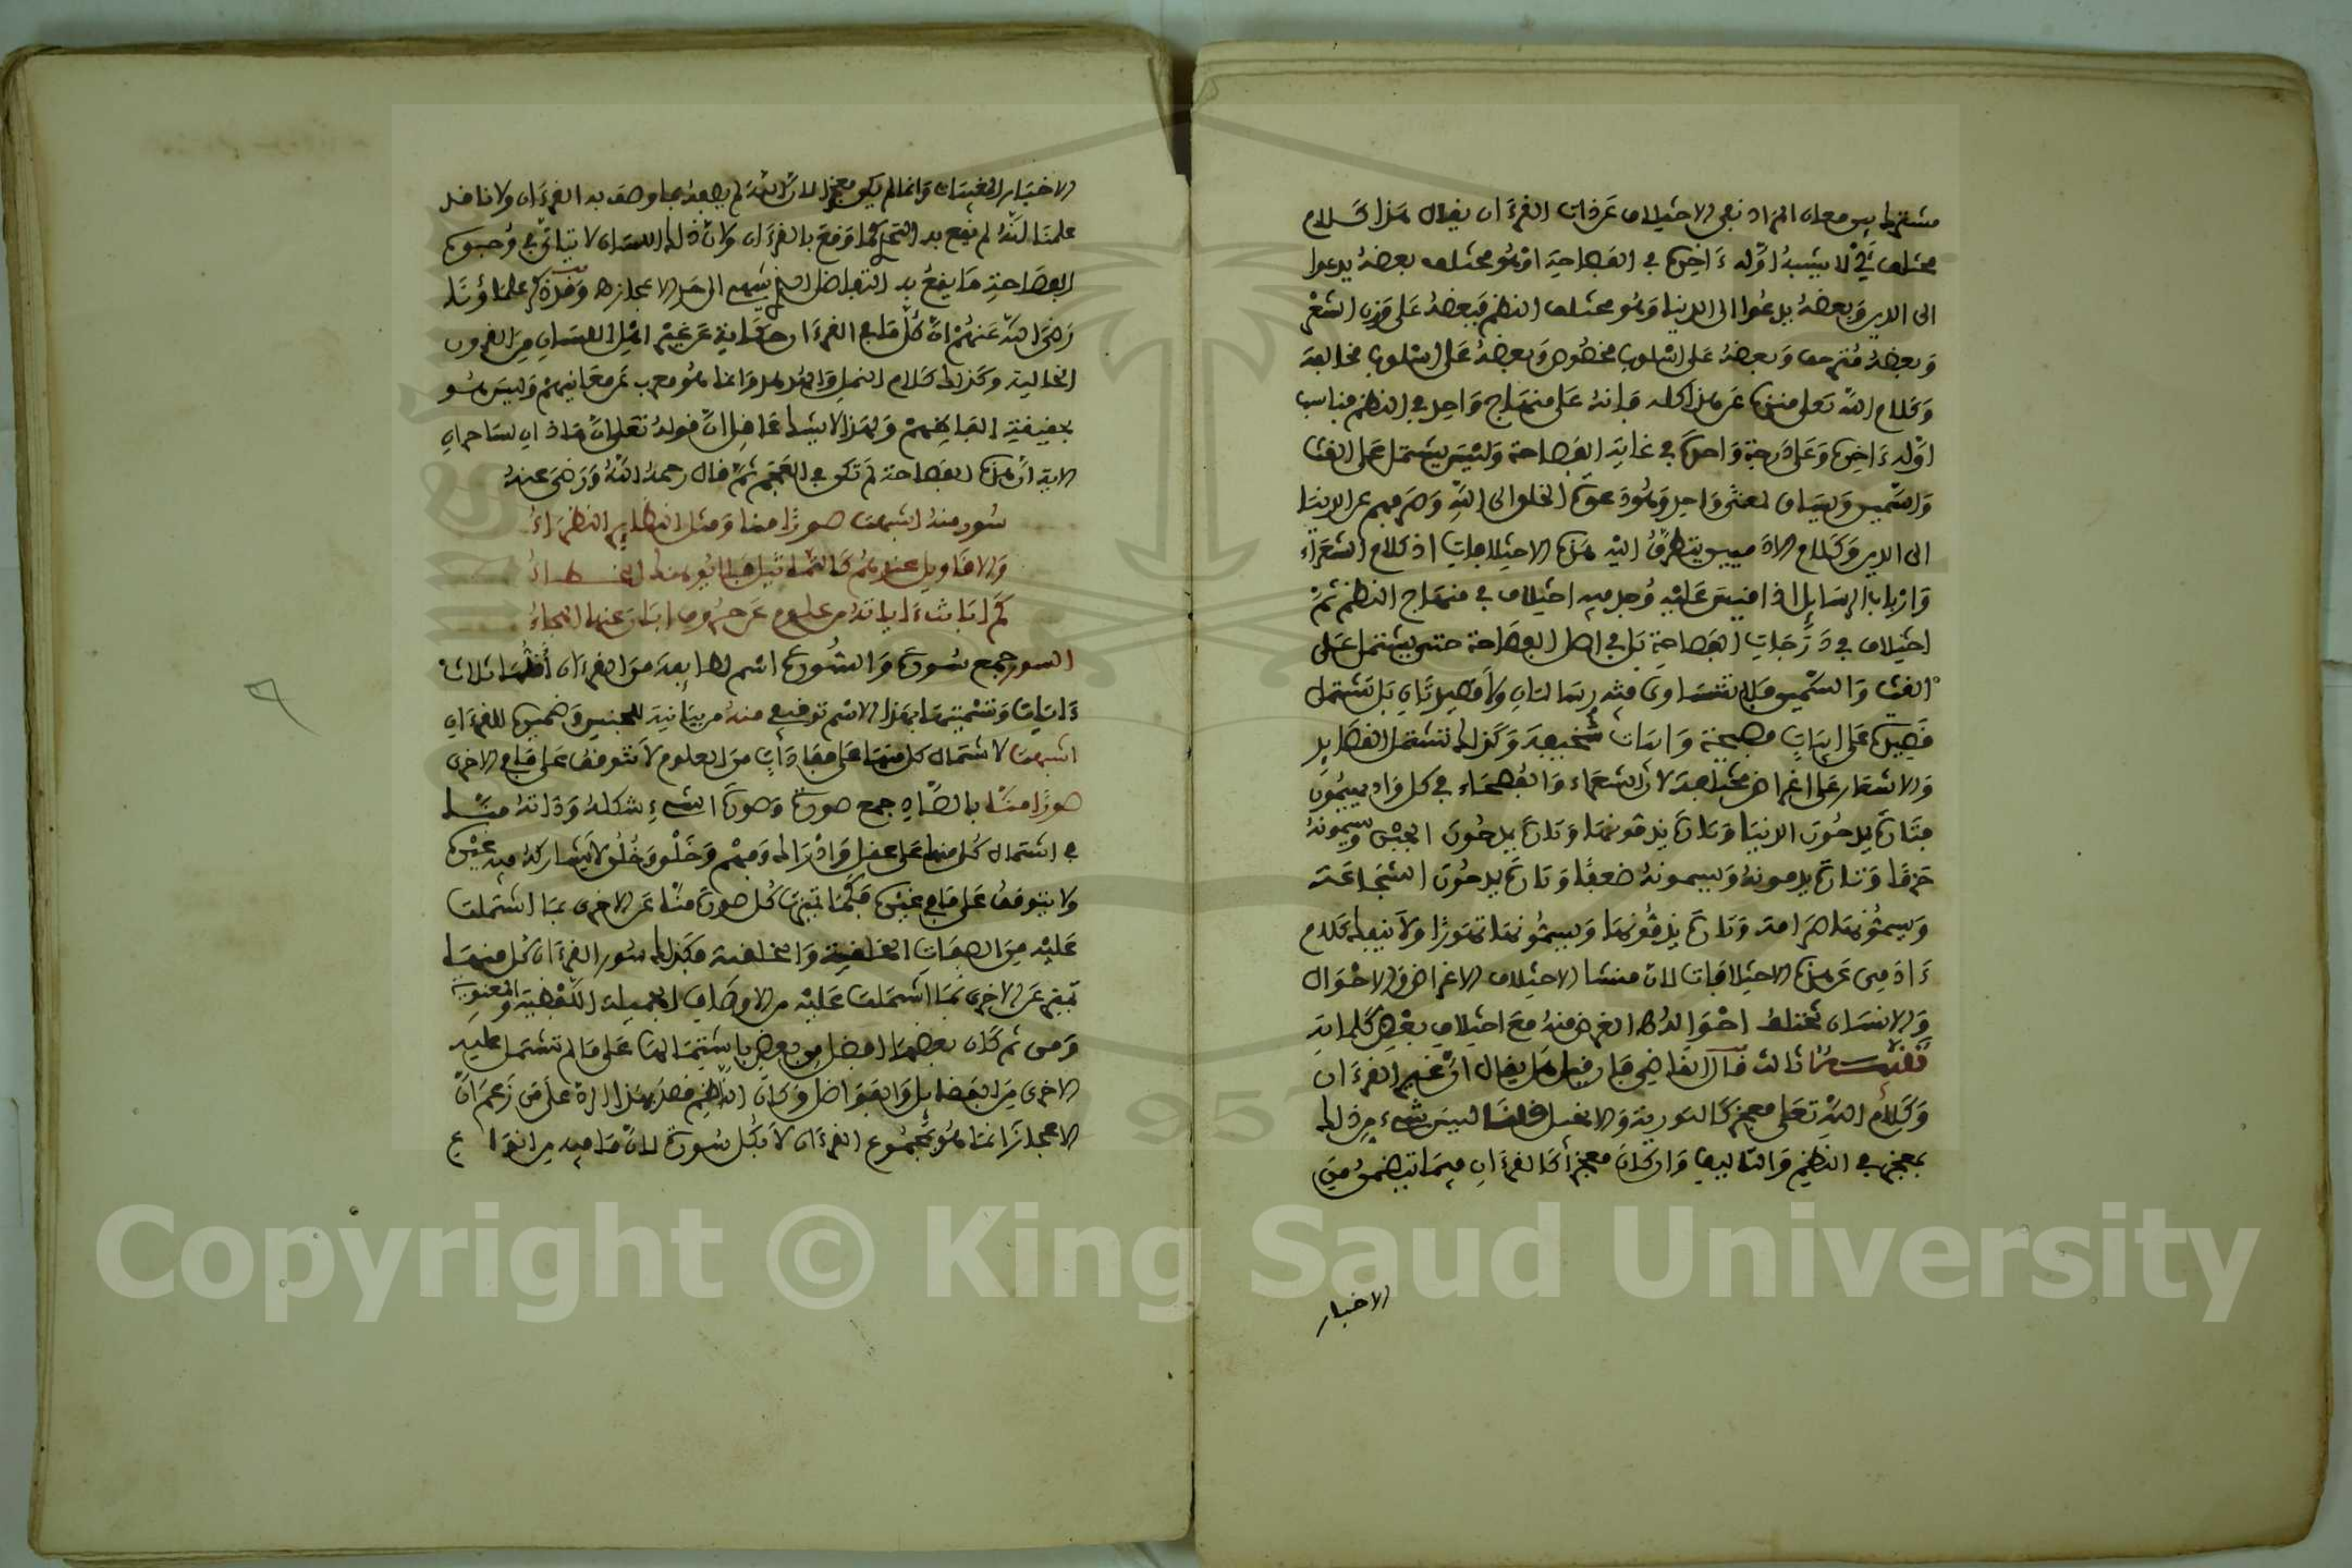 مشترط بين معان المراد نفي الاختلاف عن ذات القرءان يقال هذا كلام
مختلف أي لا يشبه أوله ءاخره في الفصاحة أو هو مختلف بعضه يدعوا
الى الدين وبعضه يدعوا الى الدنيا وهو مختلف النظم فبعضه على وزن الشعر
وبعضه منزحف وبعضه على اسلوب مخصوص وبعضه على اسلوب مخالفه
وكلام الله تعلى منزه عن هذا كله فإنه على منهاج واحد في النظم مناسب
اوله ءاخره وعلى درجة واحدة في غاية الفصاحة وليس يشتمل على الغث
والسمين ويساق لمعنى واحد وهو دعوة الخلق الى الله وصرفهم عن الدنيا
الى الدين وكلام الادميين يتطرق اليه هذه الاختلافات اذ كلام الشعراء
وارباب الرسايل اذا قيس عليه وجد فيه اختلاف في منهاج النظم ثم
اختلاف في درجات الفصاحة بل في اصل الفصاحة حتى يشتمل على
الغث والسمين فلا تتساوى فيه رسالتان ولا قصيدتان بل تشتمل
قصيدة على ابيات فصيحة وابيات سخيفة وكذلك تشتمل القصايد
والاشعار على اغراض مختلفة لان الشعراء والفصحاء في كل واد يهيمون
فتارة يمدحون الدنيا وتارة يذمونها وتارة يمدحون الجبن ويسمونه
حزما وتارة يذمونه ويسمونه ضعفا وتارة يمدحون الشجاعة
ويسمونها صرامة وتارة يذمونها ويسمونها تهورا ولا ينفك كلام
ءادمي عن هذه الاختلافات لان منشا الاختلاف الاغراض والاحوال
والانسان تختلف احواله
ثالث قال القاضي فإن قيل هل يقال ان غير القرءان
وكلام الله تعلى معجز كالتورية والانجيل قلنا ليس شيء من ذلك
بمعجز في النظم والتاليف وان كان معجزا كالقرءان فيما تتضمن من
الاخبار
الاخبار بالمغيبات وإنما لم يكن معجزا لان الله لم يصفه بما وصف به القرءان ولانا قد
علمنا انه لم يقع به التحدي كما وقع بالقرءان ولان ذلك اللسان لا يتاتى في وجوه
الفصاحة ما يقع به التفاضل الذي ينتهي الى حد الاعجاز وقد ذكر علماؤنا
رضي الله عنهم ان كل ما في القرءان حكاية عن غير اهل اللسان من القرون
الخالية وكذلك كلام النمل والهدهد وانما هو معرب عن معانيهم وليس هو
بحقيقة الفاظهم ولهذا لا يشك عاقل ان قوله تعلى ان هذان لساحران
الاية ان هذه الفصاحة لم تكن في العجم ثم قال رحمه الله ورضي عنه
سور منه اشبهت صورا منا ومثل النظاير النظراء
والاقاويل عندهم كالتماثيل فلا يوهمنك الخطباء
كم ابانت ءاياته من علوم عن حروف ابان عنها الهجاء
السور جمع سورة والسورة اسم لطايفة من القرءان اقلها ثلاث
ءايات وتسميتها بهذا الاسم توقيفي منه من بيانية للجنس وضميره للقرءان
اشبهت لاشتمال كل منها على مفادات من العلوم لا تتوقف على ما في الاخرى
صورا منا بالصاد جمع صورة وصورة الشيء شكله وذاته منا
في اشتمال كل منها على عقل وادراك وفهم وخلق وخلق لا يشاركه فيه غيره
ولا يتوقف على ما في غيره فكما تميزت كل صورة منا عن الاخرى بما اشتملت
عليه من الصفات الخلقية والخلقية فكذلك سور القرءان كل منها
تميز عن الاخرى بما اشتملت عليه من الاوصاف الجميلة اللفظية والمعنوية
ومن ثم كان بعضها افضل من بعض باشتمالها على ما لم تشتمل عليه
الاخرى من الفضايل والفواضل وكان الناظم قصد بهذا الرد على من زعم ان
الاعجاز انما هو بمجموع القرءان لا بكل سورة لان ما فيه من انواع
Copyright © King Saud University
1957